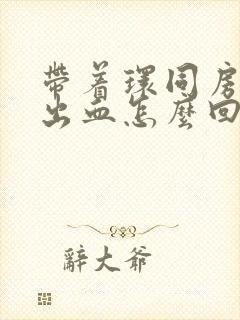 帶着環同房
出血怎麼回
辭大爺